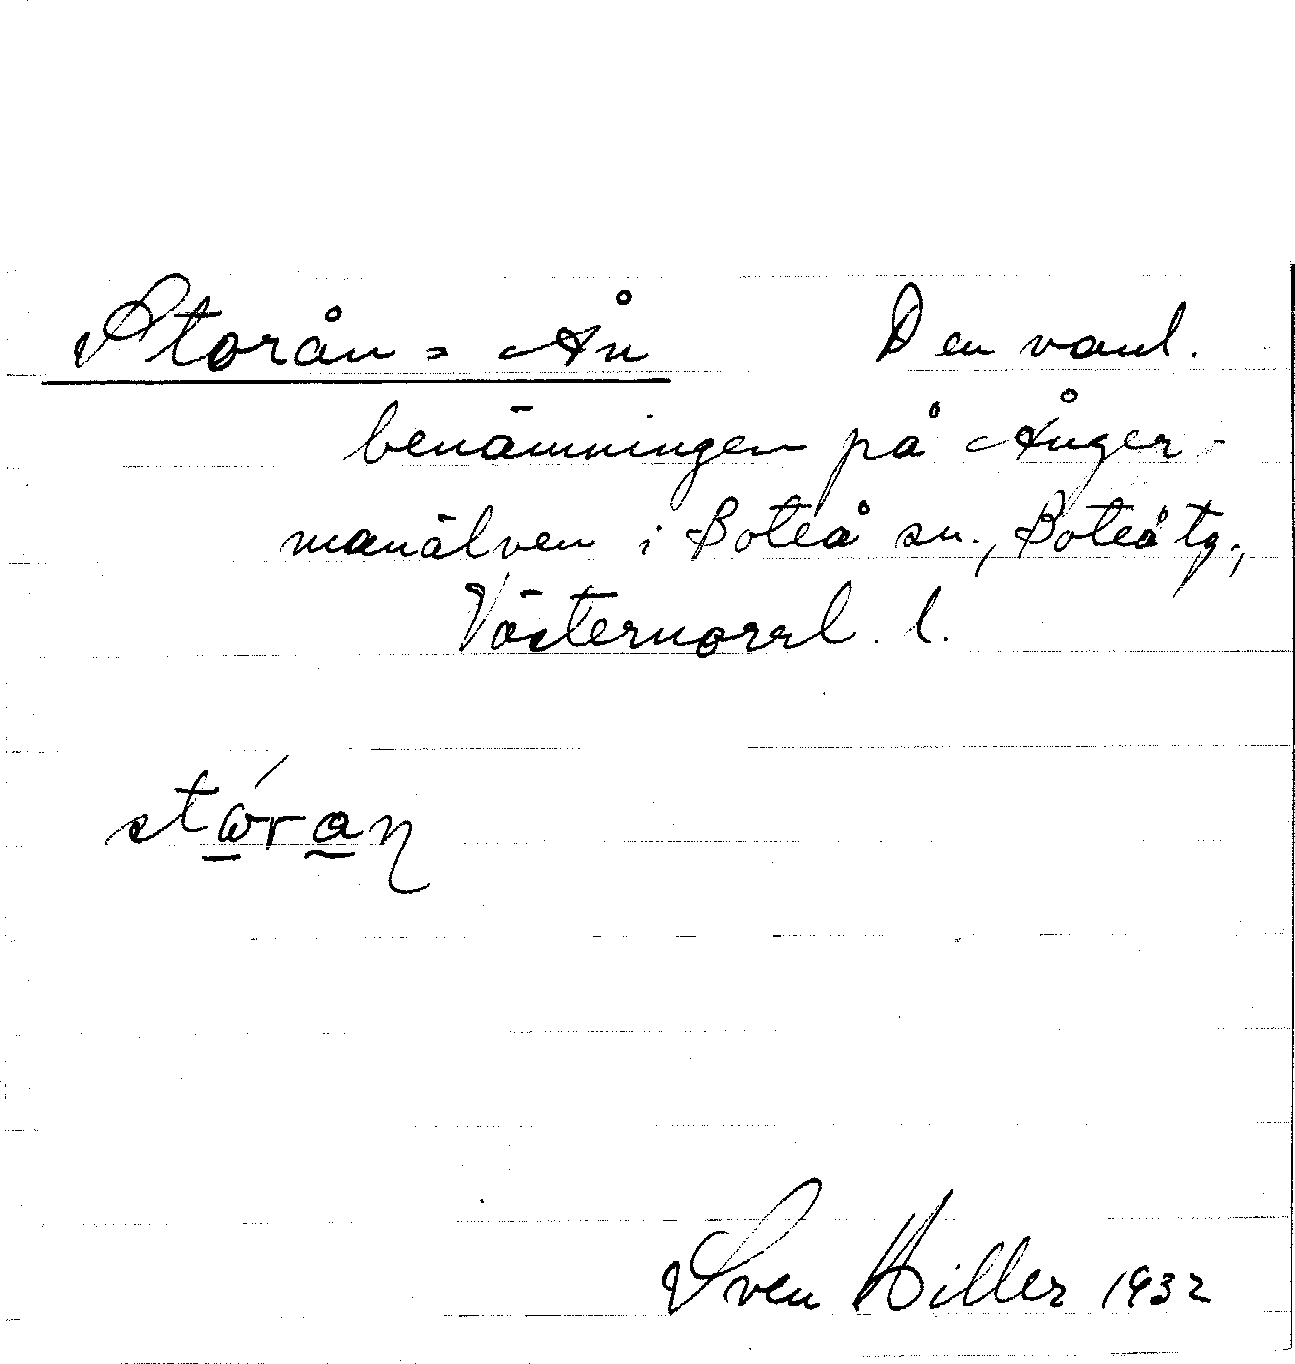 Storån = Ån Den vanl.
benämningen på Ånger-
manälven i Boteå sn., Boteå tg.,
Västernorrl. l.
stó̠ra̠ɳ
Sven Hiller 1932